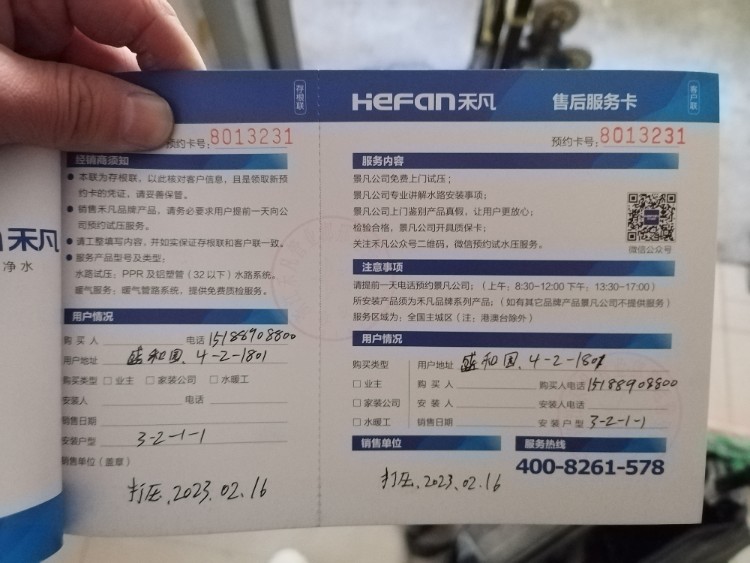 禾凡
净水
存根联
预约卡号:8013231
经销商须知
● 本联为存根联，以此核对客户信息，且是领取新预
约卡的凭证，请妥善保管。
● 销售禾凡品牌产品，请务必要求用户提前一天向公
司预约试压服务。
● 请工整填写内容，并如实保证存根联和客户联一致。
● 服务产品型号及类型:
水路试压: PPR 及铝塑管（32 以下）水路系统。
暖气服务: 暖气管路系统，提供免费质检服务。
用户情况
购 买 人 电话 15188908800
用户地址 盛和园、4-2-1801
购买类型 □ 业主 □ 家装公司 □ 水暖工
安装人 电话
销售日期
安装户型 3-2-1-1
销售单位（盖章）
打压、2023.02.16
HeFan禾凡 售后服务卡
客户联
预约卡号:8013231
服务内容
景凡公司免费上门试压；
景凡公司专业讲解水路安装事项；
景凡公司上门鉴别产品真假，让用户更放心；
检验合格，景凡公司开具质保卡；
关注禾凡公众号二维码，微信预约试水压服务。
微信公众号
注意事项
请提前一天电话预约景凡公司；（上午: 8:30~12:00 下午: 13:30~17:00）
所安装产品须为禾凡品牌系列产品；（如有其它品牌产品景凡公司不提供服务）
服务区域为: 全国主城区（注: 港澳台除外）
用户情况
购买类型 用户地址 盛和园、4-2-1801
□ 业主 购 买 人 购买人电话 15188908800
□ 家装公司 安 装 人 安装人电话
□ 水暖工 销售日期 安 装 户 型 3-2-1-1
销售单位 服务热线
400-8261-578
打压、2023.02.16